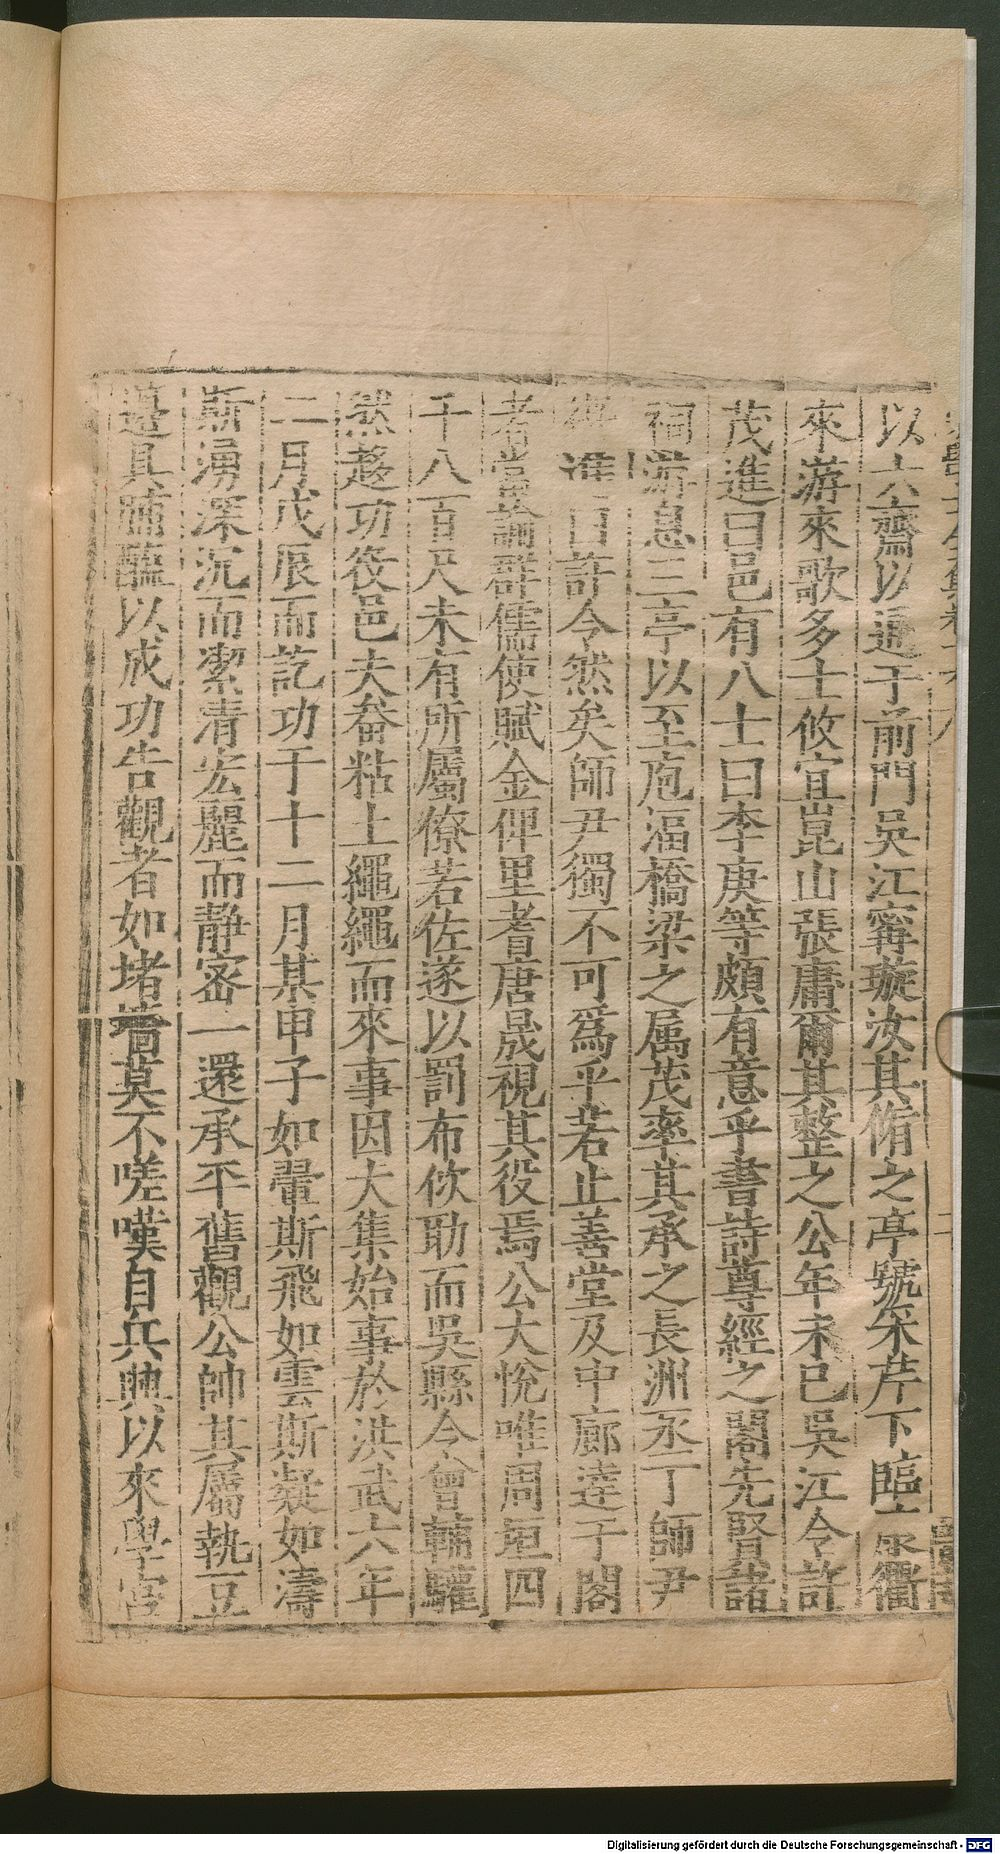 以六齋以通于前門吳江寗璇汝其脩之亭號采芹下臨衢
來游來歌多士攸宜崑山張庸爾其整之公年未已吳江令許
茂進曰邑有八士曰李庚等頗有意乎書詩尊經之閣先賢諸
祠游息三亭以至庖湢橋梁之属茂率其承之長洲丞丁師尹
進曰許令然矣師尹獨不可爲乎若止善堂及中廊逵于閣
者當論群儒使賦金俾里耆唐晟視其役焉公大悅唯周垣四
千八百尺未有所屬僚若佐遂以罰布佽助而吳縣令曾輔驩
然趍功役邑夫畚粘土繩繩而來事因大集始事於洪武六年
二月戊辰而訖功于十二月某甲子如翬斯飛如雲斯凝如濤
斯湧深沉而潔清宏麗而静密一還承平舊觀公帥其屬執豆
籩具脯醢以成功告觀者如堵墻莫不嗟嘆自兵興以來學宮
Digitalisierung gefördert durch die Deutsche Forschungsgemeinschaft - DFG